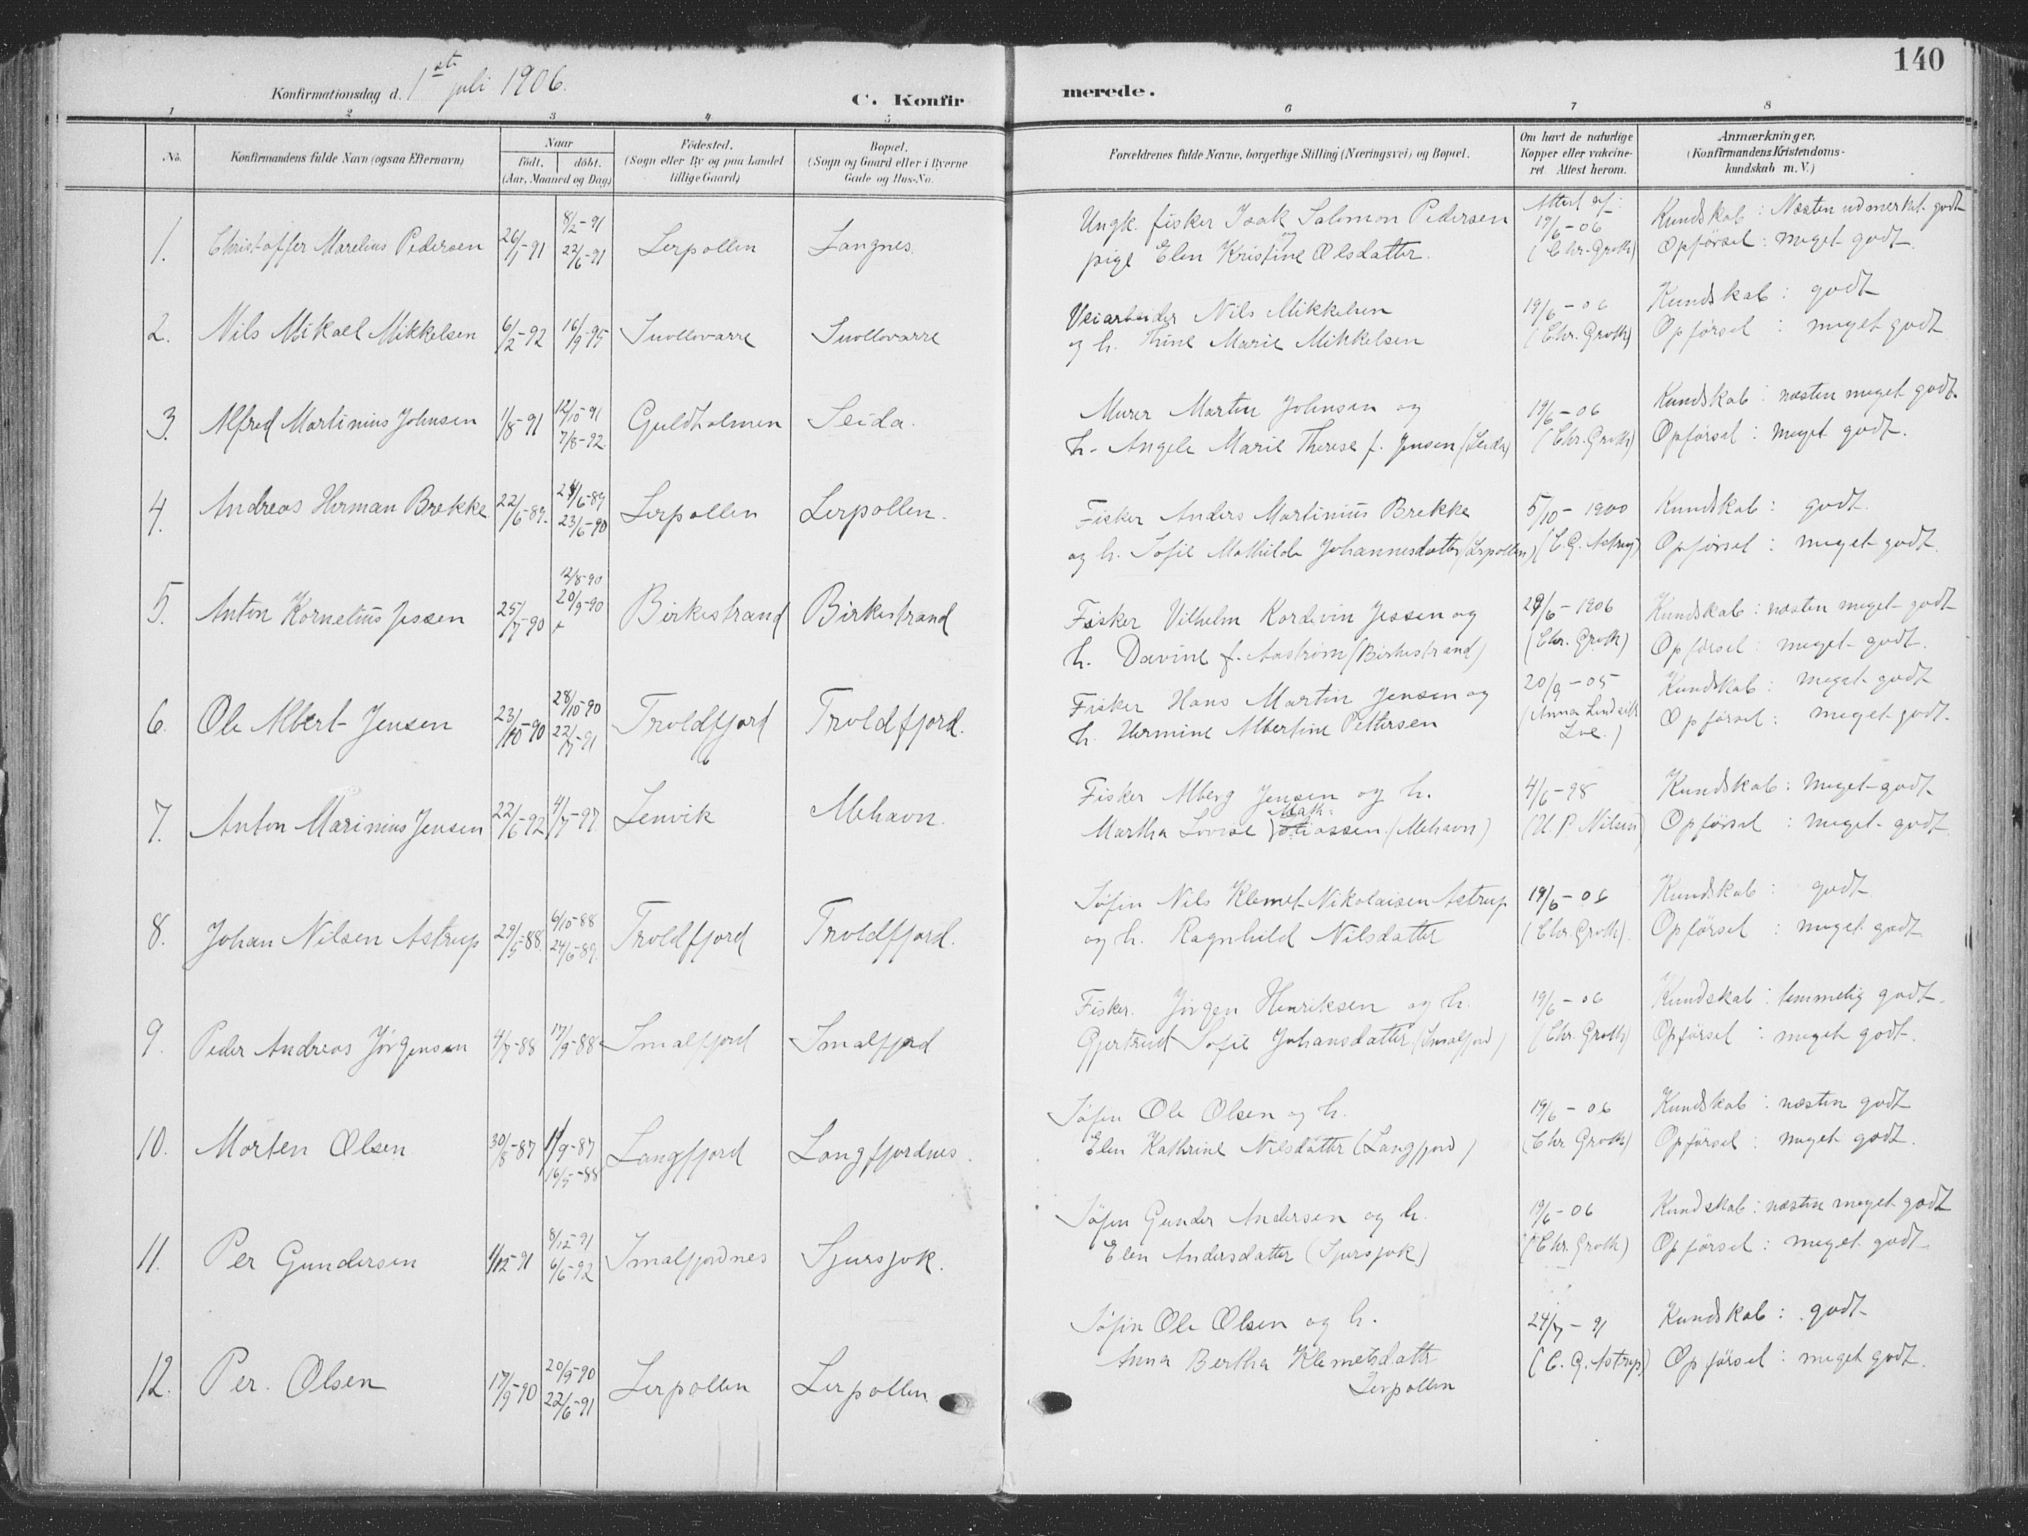 140
Konfirmationsdag d. 1ste juli 1906.
C. Konfirmerede.
1 2 3 4 5 6 7 8
No.
Konfirmandens fulde Navn (ogsaa Efternavn)
Naar
födt. döbt.
(Aar, Maaned og Dag)
Födested.
(Sogn eller By og paa Landet
tillige Gaard)
Bopæl.
(Sogn og Gaard eller i Byerne
Gade og Hus-No.
Forældrenes fulde Navne, borgerlige Stilling (Næringsvei) og Bopæl.
Om havt de naturlige
Kopper eller vakcine-
ret. Attest herom.
Anmærkninger.
(Konfirmandens Kristendoms-
kundskab m. V.)
1. Christoffer Marelius Pedersen 26/1-91 8/2-91 22/6-91 Lerpollen Langnes.
Ungk. fisker Isak Salomon Pedersen og
pige Elen Kristine Olsdatter.
Attest af: 19/6-06 (Chr. Groth)
Kundskab: Næsten udmerket godt
Opførsel: meget godt.
2. Nils Mikael Mikkelsen 6/2-92 16/9-95 Suollovarre Suollovarre
Veiarbeider Nils Mikkelsen
og h. Trine Marie Mikkelsen
19/6-06 (Chr. Groth)
Kundskab: godt
Opførsel: meget godt
3. Alfred Martinius Johnsen 1/8-91 12/10-91 7/8-92 Guldholmen Seida.
Murer Martin Johnsen og
h. Angele Marie Therese f. Jensen (Seida)
19/6-06 (Chr. Groth)
Kundskab: næsten meget godt.
Opførsel: meget godt.
4. Andreas Herman Brekke 22/5-89. 24/6-89 23/6-90 Lerpollen Lerpollen.
Fisker Anders Martinius Brekke
og h. Sofie Mathilde Johannesdatter (Lerpollen)
5/10-1900 (C. G. Astrup)
Kundskab: godt.
Opførsel: meget godt.
5. Anton Kornelius Jessen 25/7-90 12/8-90 20/9-90 Birkestrand Birkestrand
Fisker Vilhelm Kordevin Jessen og
h. Davine f. Aastrøm (Birkestrand)
29/6-1906 (Chr. Groth)
Kundskab: næsten meget godt
Opførsel: meget godt.
6. Ole Albert Jensen 23/10-90 28/10-90 22/7-91 Troldfjord Troldfjord.
Fisker Hans Martin Jensen og
h. Hermine Albertine Pettersen
20/9-05
Kundskab: meget godt
Opførsel: meget godt.
7. Anton Marinius Jensen 22/6-92 4/7-97. Lenvik Mehavn.
Fisker Alberg Jensen og h.
Martha Lovise Mathiassen (Mehavn)
4/6-98 (U. P. Nilsen)
Kundskab: meget godt
Opførsel: meget godt
8. Johan Nilsen Astrup 29/5-88. 9/10-88 24/6-89. Troldfjord Troldfjord.
Søfin Nils Klemet Nikolaisen Astrup
og h. Ragnhild Nilsdatter
19/6-06 (Chr. Groth).
Kundskab: godt
Opførsel: meget godt
9. Peder Andreas Jørgensen 4/7-88 17/9-88 Smalfjord Smalfjord
Fisker. Jørgen Henriksen og h.
Gjertrud Sofie Johansdatter (Smalfjord)
19/6-06 (Chr. Groth)
Kundskab: temmelig godt.
Opførsel: meget godt.
10. Morten Olsen 30/8-87 11/9-87 16/5-88 Langfjord Langfjordnes.
Søfin Ole Olsen og h.
Elen Kathrine Nilsdatter (Langfjord)
19/6-06 (Chr Groth)
Kundskab: næsten godt
Opførsel: meget godt.
11. Per Gundersen 1/12-91 8/12-91 6/6-92 Smalfjordnes Sjursjok.
Søfin Gunder Andersen og h.
Elen Andersdatter (Sjursjok)
19/6-06 (Chr. Groth)
Kundskab: næsten meget godt
Opførsel: meget godt.
12. Per. Olsen 17/9-90 20/9-90 22/6-91 Lerpollen Lerpollen
Søfin Ole Olsen og h.
Anna Bertha Klemetsdatter
Lerpollen
24/7-91 (C. G. Astrup)
Kundskab: godt
Opførsel: meget godt.